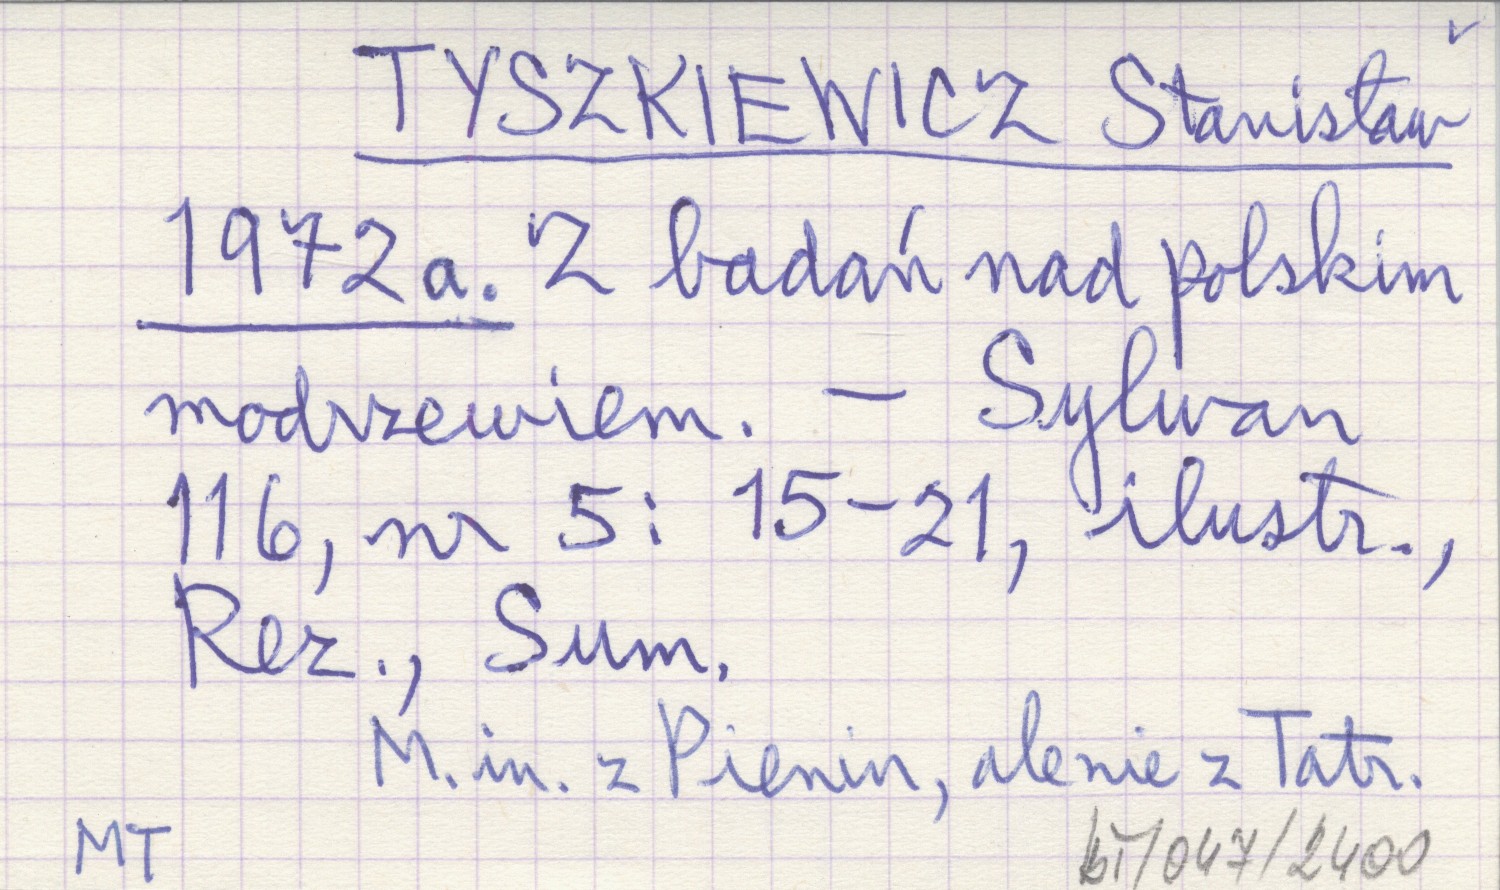 TYSZKIEWICZ Stanisław
1972a. Z badań nad polskim
modrzewiem. — Sylwan
116, nr 5: 15-21, ilustr.,
Rez., Sum.
M. in. z Pienin, ale nie z Tatr.
MT
bT/047/2400